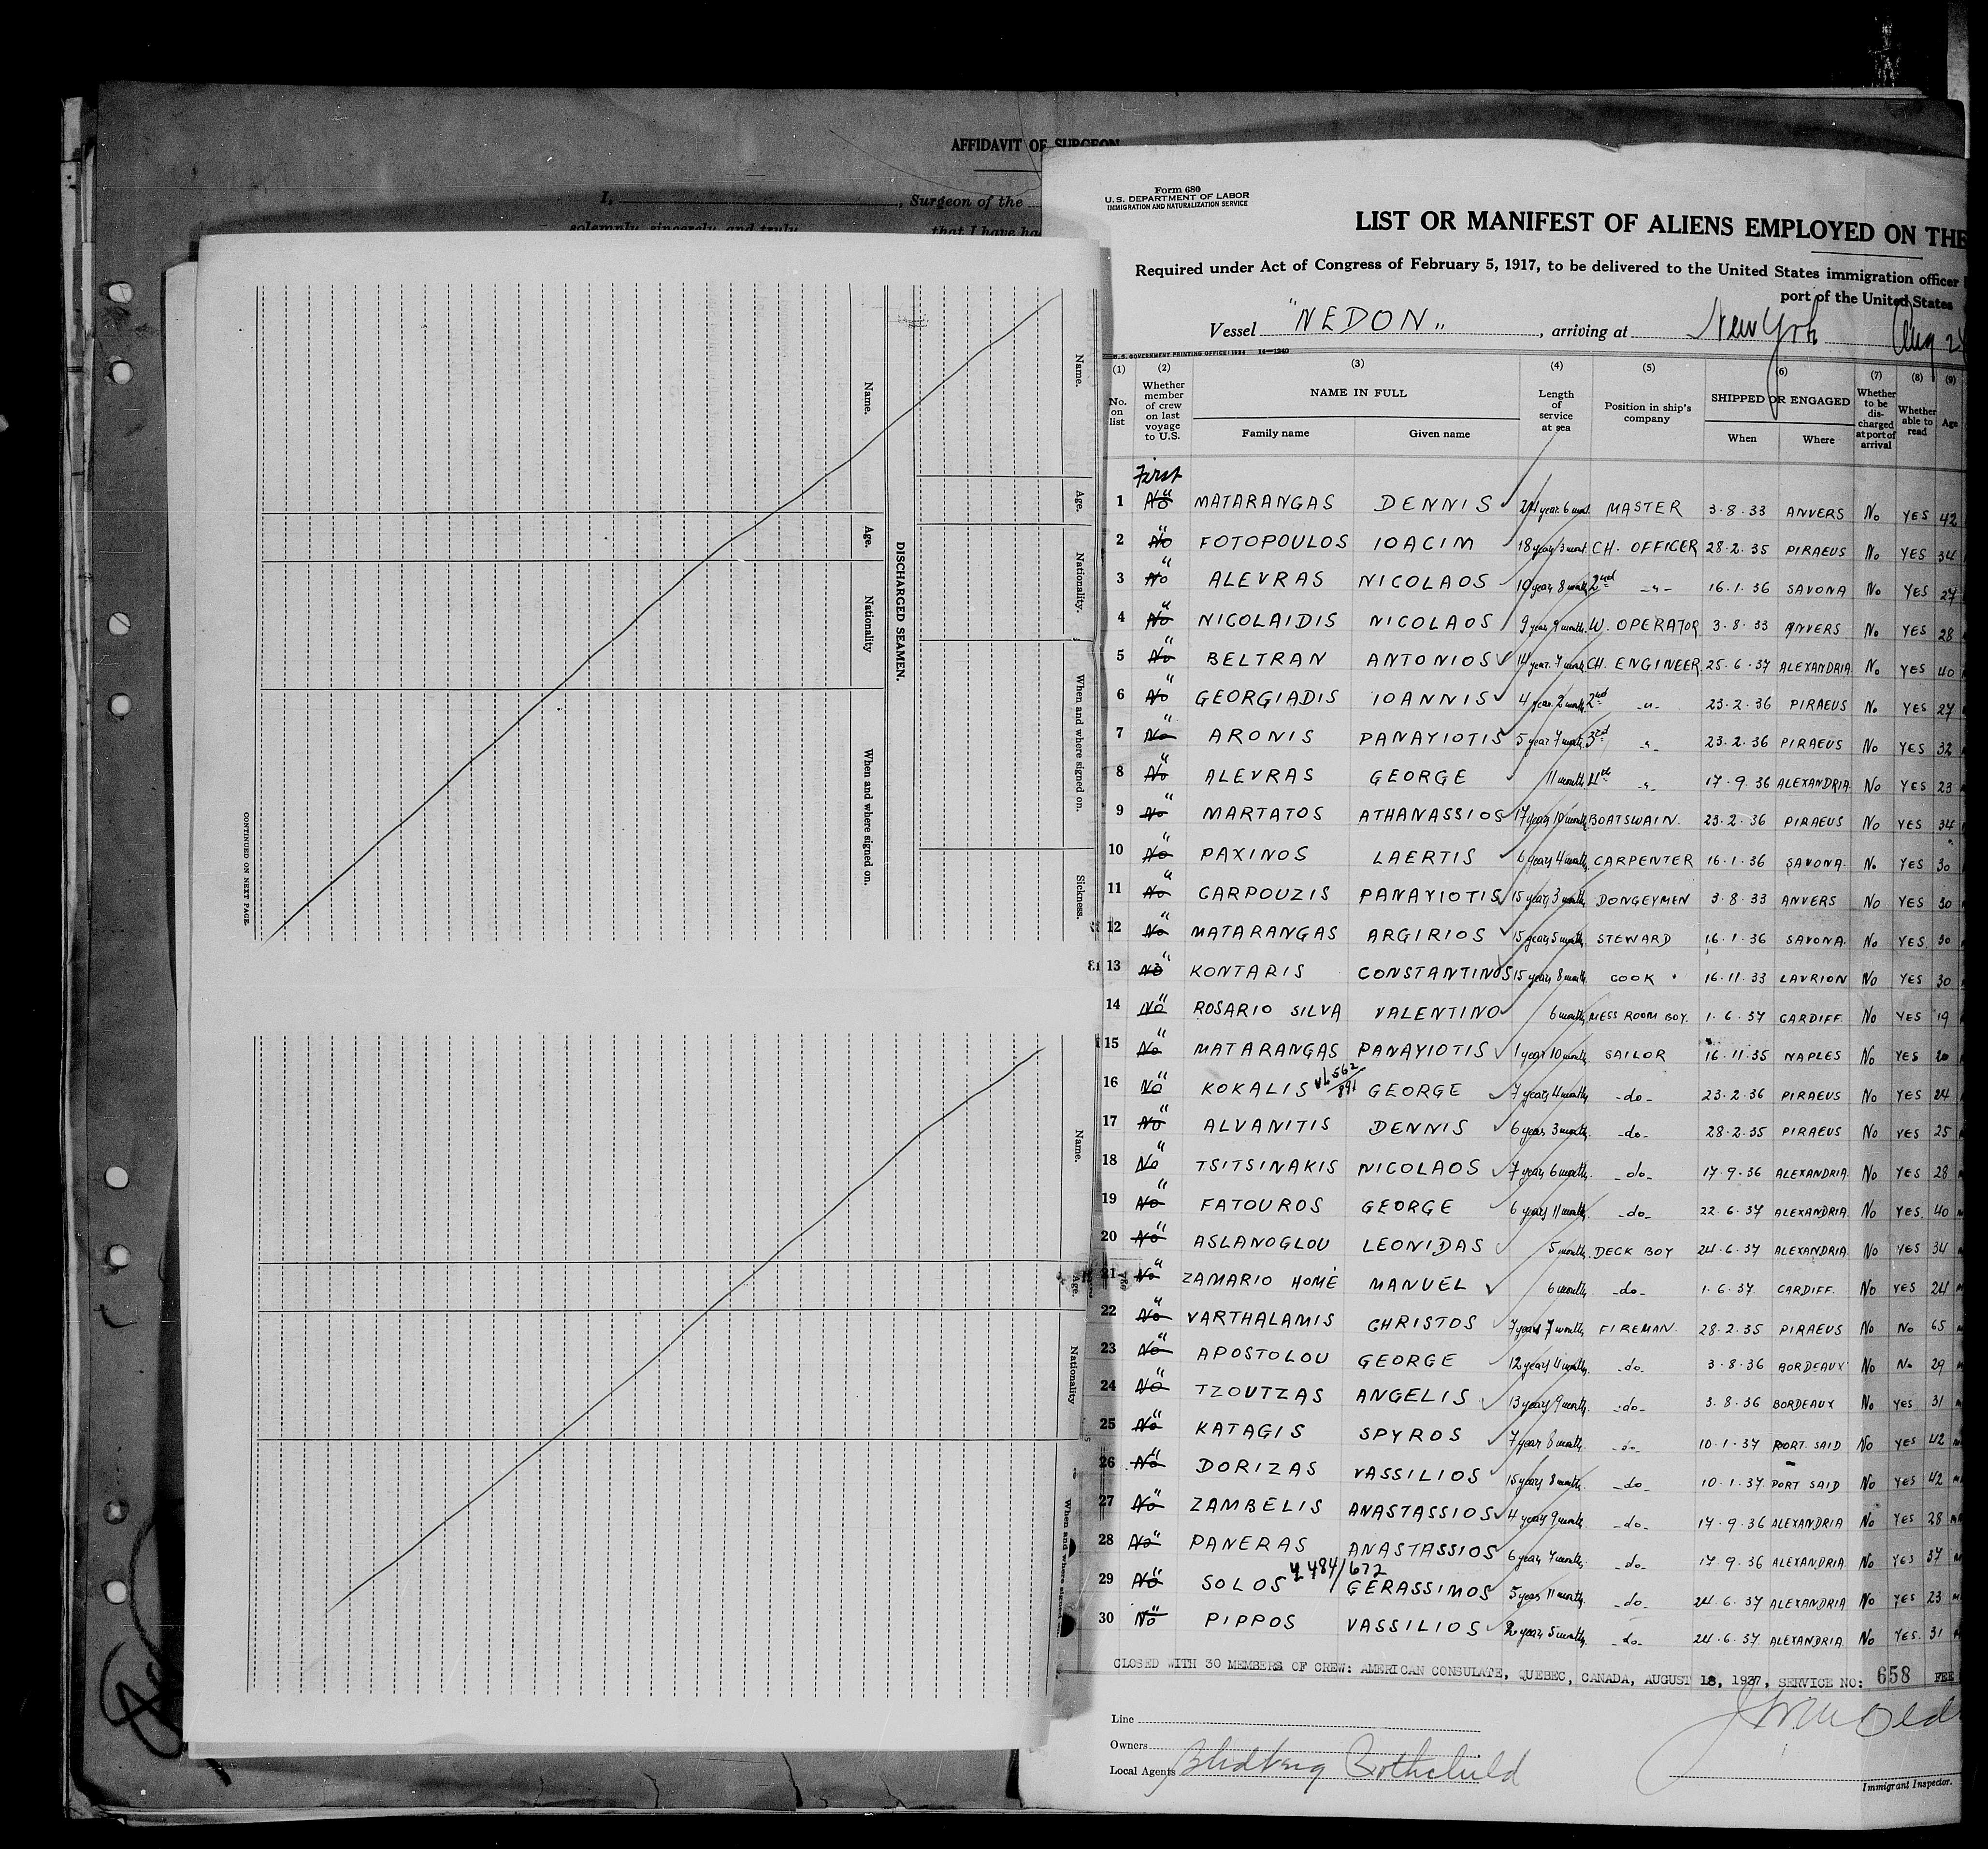 AFFIDAVIT OF SURGEON
I, , Surgeon of the
solemnly, sincerely, and truly that I have
Name. Age. Nationality. When and where signed on. Sickness.
DISCHARGED SEAMEN.
Name. Age. Nationality When and where signed on.
CONTINUED ON NEXT PAGE.
Name. Age. Nationality When and where signed
Form 680
U. S. DEPARTMENT OF LABOR
IMMIGRATION AND NATURALIZATION SERVICE
LIST OR MANIFEST OF ALIENS EMPLOYED ON THE
Required under Act of Congress of February 5, 1917, to be delivered to the United States immigration officer
port of the United States
Vessel "NEDON", arriving at New York Aug
U.S. GOVERNMENT PRINTING OFFICE: 1934 14—1240
(1) (2) (3) (4) (5) (6) (7) (8) (9)
No. on list Whether member of crew on last voyage to U.S. NAME IN FULL Family name Given name Length of service at sea Position in ship's company SHIPPED OR ENGAGED When Where Whether to be discharged at port of arrival Whether able to read Age
First
1 No " MATARANGAS DENNIS 24 year 6 mont MASTER 3.8.33 ANVERS No YES 42
2 No " FOTOPOULOS IOACIM 18 years 3 mont. CH. OFFICER 28.2.35 PIRAEUS No YES 34
3 No " ALEVRAS NICOLAOS 10 years 8 month 2nd -"- 16.1.36 SAVONA No YES 27
4 No " NICOLAIDIS NICOLAOS 9 years 9 months. W. OPERATOR 3.8.33 ANVERS No YES 28
5 No " BELTRAN ANTONIOS 14 year. 7 month CH. ENGINEER 25.6.37 ALEXANDRIA No YES 40
6 No " GEORGIADIS IOANNIS 4 year 2 month 2nd -"- 23.2.36 PIRAEUS No YES 27
7 No " ARONIS PANAYIOTIS 5 year 7 month 3rd -"- 23.2.36 PIRAEUS No YES 32
8 No " ALEVRAS GEORGE 11 months 4th -"- 17.9.36 ALEXANDRIA No YES 23
9 No " MARTATOS ATHANASSIOS 17 years 10 months BOATSWAIN. 23.2.36 PIRAEUS No YES 34
10 No " PAXINOS LAERTIS 6 years 4 months CARPENTER 16.1.36 SAVONA. No YES 30
11 No " CARPOUZIS PANAYIOTIS 15 years 3 months DONGEYMEN 3.8.33 ANVERS No YES 30
12 No " MATARANGAS ARGIRIOS 15 years 5 months STEWARD 16.1.36 SAVONA. No YES. 30
13 No " KONTARIS CONSTANTINOS 15 years 8 months COOK 16.11.33 LAVRION No YES 30
14 No " ROSARIO SILVA VALENTINO 6 months MESS ROOM BOY. 1.6.37 CARDIFF. No YES 19
15 No " MATARANGAS PANAYIOTIS 1 year 10 months SAILOR 16.11.35 NAPLES No YES 20
16 No " KOKALIS v6562/891 GEORGE 7 years 4 months -do- 23.2.36 PIRAEUS No YES 24
17 No " ALVANITIS DENNIS 6 years 3 months. -do- 28.2.35 PIRAEUS No YES 25
18 No " TSITSINAKIS NICOLAOS 7 years 6 months. -do- 17.9.36 ALEXANDRIA No YES 28
19 No " FATOUROS GEORGE 6 years 11 months. -do- 22.6.37 ALEXANDRIA. No YES. 40
20 No " ASLANOGLOU LEONIDAS 5 months. DECK BOY 24.6.37 ALEXANDRIA. No YES 34
21 No " ZAMARIO HOMÉ MANUEL 6 months -do- 1.6.37. CARDIFF. No YES 24
22 No " VARTHALAMIS CHRISTOS 7 years 7 months FIREMAN. 28.2.35 PIRAEUS No No 65
23 No " APOSTOLOU GEORGE 12 years 4 months. -do- 3.8.36 BORDEAUX No No 29
24 No " TZOUTZAS ANGELIS 13 years 9 months. -do- 3.8.36 BORDEAUX No YES 31
25 No " KATAGIS SPYROS 7 year 8 month. -do- 10.1.37 PORT SAID No YES 42
26 No " DORIZAS VASSILIOS 15 years 8 months. -do- 10.1.37. PORT SAID No YES 42
27 No " ZAMBELIS ANASTASSIOS 4 years 9 month. -do- 17.9.36 ALEXANDRIA No YES 28
28 No " PANERAS ANASTASSIOS 6 years 7 months. -do- 17.9.36 ALEXANDRIA. No YES 37
29 No " SOLOS 4484/672 GERASSIMOS 5 years 11 months. -do- 24.6.37 ALEXANDRIA No YES 23
30 No " PIPPOS VASSILIOS 2 years 5 months. -do- 24.6.37. ALEXANDRIA No YES. 31
CLOSED WITH 30 MEMBERS OF CREW: AMERICAN CONSULATE, QUEBEC, CANADA, AUGUST 18, 1937, SERVICE NO: 658 FEE
Line
Owners
Local Agents Blidberg Rothchild
Immigrant Inspector.